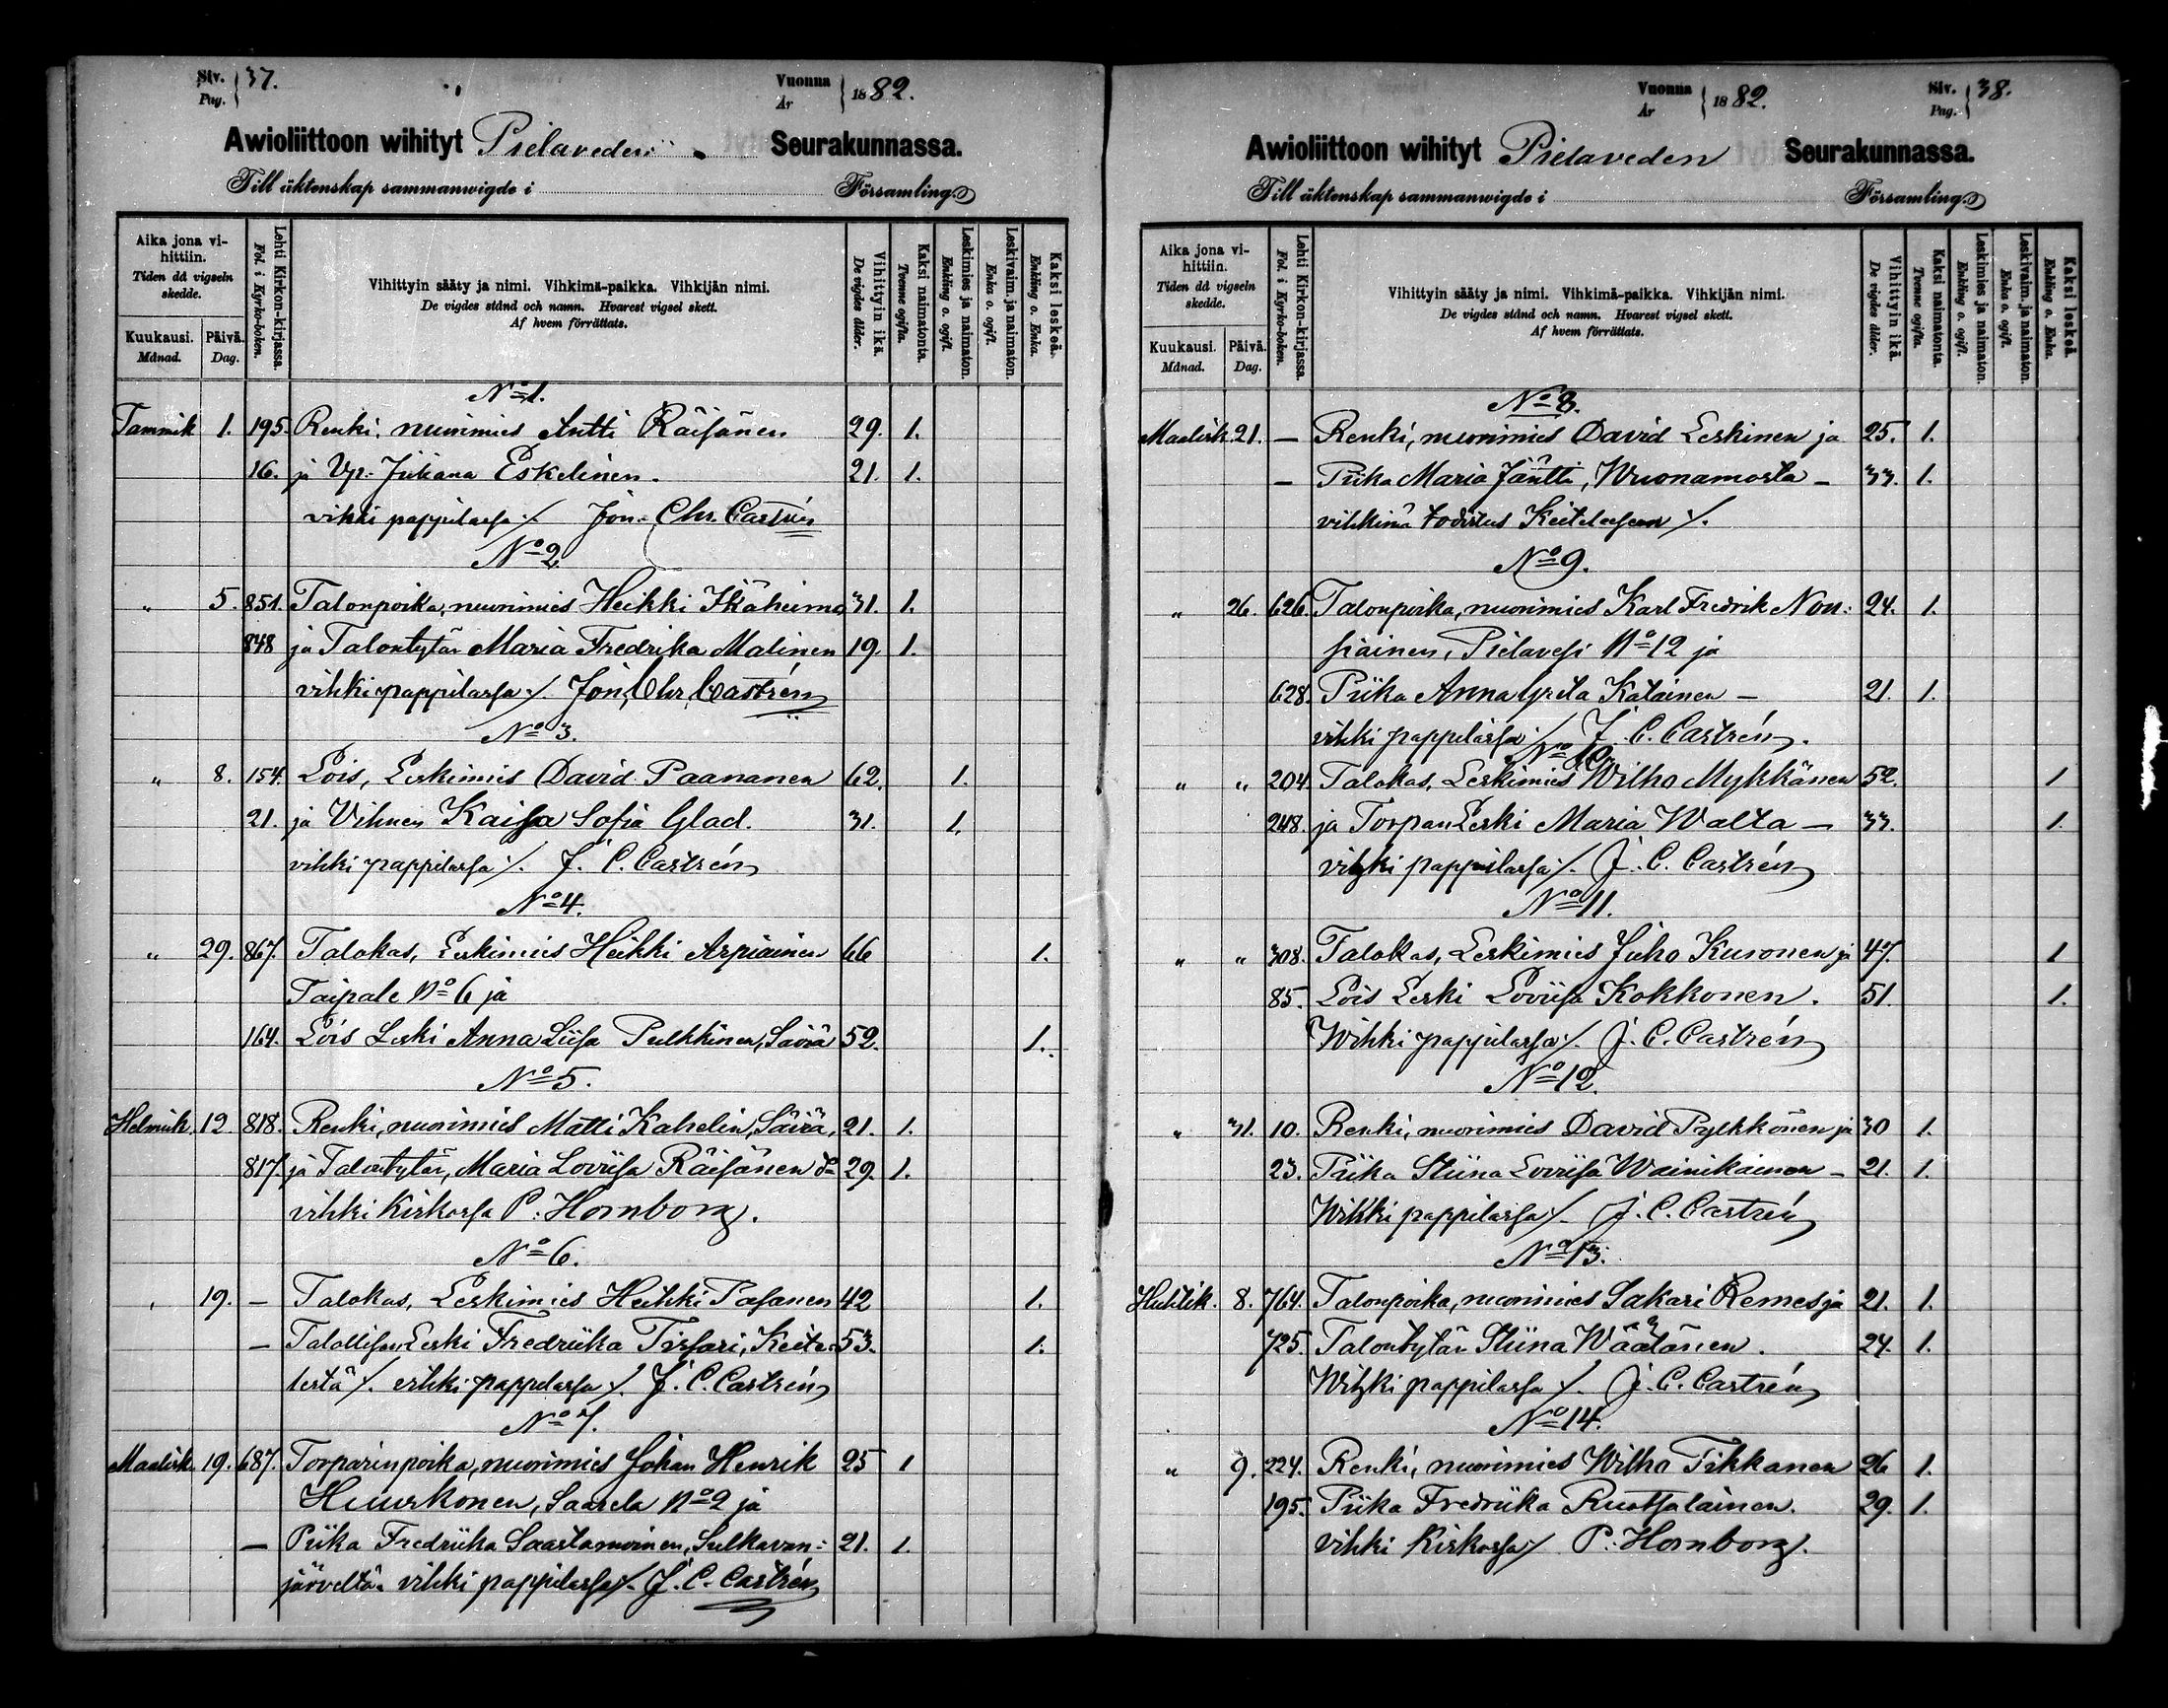 Siv. Pag. } 37.
Vuonna År } 1882.
Awioliittoon wihityt Pielaveden Seurakunnassa.
Till äktenskap sammanwigde i Församling.
Aika jona vihittiin. Tiden då vigseln skedde.
Kuukausi. Månad.
Päivä. Dag.
Lehti Kirkon-kirjassa. Fol. i Kyrko-boken.
Vihittyin sääty ja nimi. Vihkimä-paikka. Vihkijän nimi.
De vigdes stånd och namn. Hvarest vigsel skett.
Af hvem förrättats.
Vihittyin ikä. De vigdes ålder.
Kaksi naimatonta. Tvenne ogifta.
Leskimies ja naimaton. Enkling o. ogift.
Leskivaim. ja naimaton. Enka o. ogift.
Kaksi leskeä. Enkling o. Enka.
No 1.
Tammik 1. 195. Renki, nuorimies Antti Räisänen 29. 1.
16. ja Juliana Eskelinen. 21. 1.
vihki pappilassa /. Jon. Chr. Castrén
No 2
" 5. 851. Talonpoika, nuorimies Heikki Ikäheimo 31. 1.
848 ja Talontytär Maria Fredrika Malinen 19. 1.
vihki pappilassa /. Jon. Chr. Castrén
No 3.
" 8. 154. Lois, Leskimies David Paananen 62. 1.
21. ja Kaisa Sofia Glad. 31. 1.
vihki pappilassa /. J. C. Castrén
No 4.
" 29. 867. Talokas, Leskimies Heikki Arpiainen 66 1.
Taipale No 6 ja
164. Lois Leski Anna Liisa Pulkkinen, Säviä 52. 1.
No 5.
Helmik. 12 818. Renki, nuorimies Matti Kahelin, Säviä, 21. 1.
817. ja Talontytär, Maria Loviisa Räisänen 29. 1.
vihki Kirkossa P. Hornborg.
No 6.
" 19. — Talokas, Leskimies Heikki Pasanen 42 1.
— Talollisen Leski Fredriika Tissari, Keite- 53. 1.
lestä /. vihki pappilassa /. J. C. Castrén
No 7.
Maalisk. 19. 687. Torparinpoika, nuorimies Johan Henrik 25 1
Huuskonen, Saarela No 2 ja
— Piika Fredriika Saastamoinen, Sulkavan- 21. 1.
järveltä. vihki pappilassa /. J. C. Castrén
Vuonna År } 1882.
Siv. Pag. } 38.
Awioliittoon wihityt Pielaveden Seurakunnassa.
Till äktenskap sammanwigde i Församling.
Aika jona vihittiin. Tiden då vigseln skedde.
Kuukausi. Månad.
Päivä. Dag.
Lehti Kirkon-kirjassa. Fol. i Kyrko-boken.
Vihittyin sääty ja nimi. Vihkimä-paikka. Vihkijän nimi.
De vigdes stånd och namn. Hvarest vigsel skett.
Af hvem förrättats.
Vihittyin ikä. De vigdes ålder.
Kaksi naimatonta. Tvenne ogifta.
Leskimies ja naimaton. Enkling o. ogift.
Leskivaim. ja naimaton. Enka o. ogift.
Kaksi leskeä. Enkling o. Enka.
No 8.
Maalisk. 21. — Renki, nuorimies David Leskinen ja 25. 1.
— Piika Maria Jäntti, Wuonamosta — 33. 1.
vihkimä todistus /.
No 9.
" 26. 626. Talonpoika, nuorimies Karl Fredrik Nou- 24. 1.
siainen, Pielavesi No 12 ja
628. Piika Anna Greta Katainen — 21. 1.
vihki pappilassa /. J. C. Castrén.
No 10.
" " 204 Talokas, Leskimies Wilho Mykkänen 52. 1
248. ja Torpan Leski Maria Walta — 33. 1.
vihki pappilassa /. J. C. Castrén
No 11.
" " 308. Talokas, Leskimies Juho Kuronen ja 47. 1
85. Lois Leski Loviisa Kokkonen. 51. 1.
Wihki pappilassa /. J. C. Castrén
No 12.
" 31. 10. Renki, nuorimies David Pylkkönen ja 30 1.
23. Piika Stiina Loviisa Wainikainen — 21. 1.
Wihki pappilassa /. J. C. Castrén
No 13.
Huhtik. 8. 764. Talonpoika, nuorimies Sakari Remes ja 21. 1.
725. Talontytär Stiina Wäätänen. 24. 1.
Wihki pappilassa /. J. C. Castrén
No 14.
" 9. 224. Renki, nuorimies Wilho Tikkanen 26 1.
195. Piika Fredriika Ruotsalainen. 29. 1.
vihki Kirkossa / P. Hornborg.